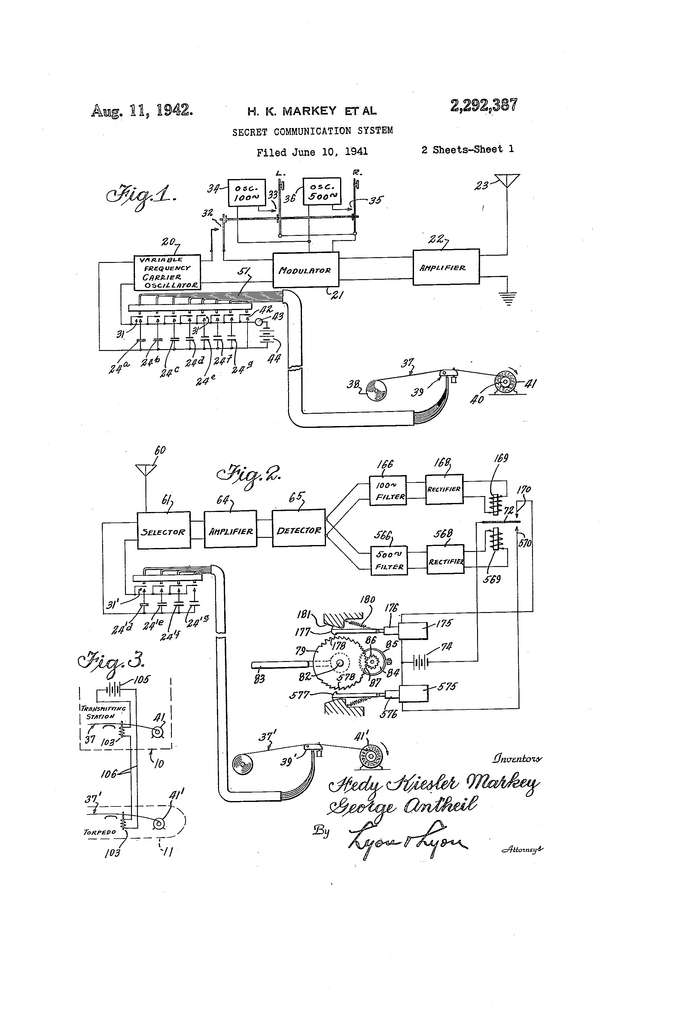 Aug. 11, 1942.
H. K. MARKEY ET AL
2,292,387
SECRET COMMUNICATION SYSTEM
Filed June 10, 1941
2 Sheets-Sheet 1
Fig.1.
34
OSC. 100~
33
L.
36
OSC. 500~
R.
35
23
32
20
VARIABLE FREQUENCY CARRIER OSCILLATOR
51
MODULATOR
21
22
AMPLIFIER
31
31
42
43
44
24a
24b
24c
24d
24e
24f
24g
37
38
39
40
41
60
Fig.2.
61
SELECTOR
64
AMPLIFIER
65
DETECTOR
166
100~ FILTER
168
RECTIFIER
169
170
72
566
500~ FILTER
568
RECTIFIER
569
570
31'
24'd
24'e
24'f
24'g
181
180
176
175
177
178
79
86
85
74
83
82
578
87
84
577
576
575
Fig.3.
105
TRANSMITTING STATION
41
37
103
10
106
37'
41'
TORPEDO
103
11
37'
39'
41'
Inventors
Hedy Kiesler Markey
George Antheil
By
Lyon & Lyon
Attorneys